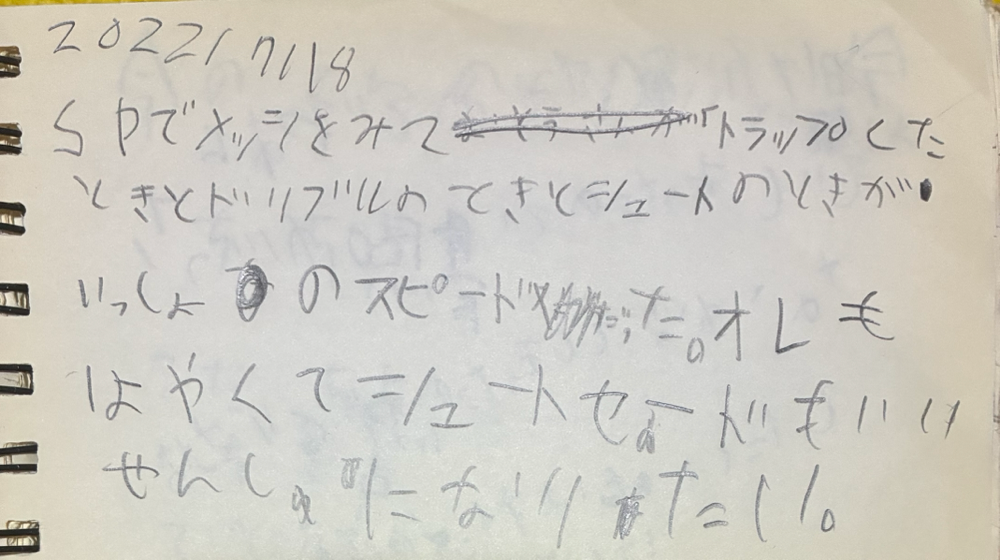 2022/7/18
5やでメッシをみてトラップくた
ときとドリブルのてきとシュートのときが
いっしょのスピードた。オレも
はやくてシュートもいい
せんしゅになりたい。